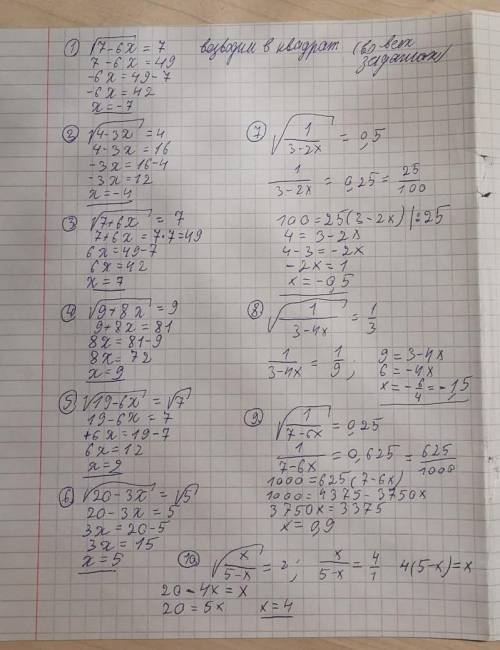 возводим в квадрат (во всех
заданиях)
① √(7-6x) = 7
7-6x = 49
-6x = 49-7
-6x = 42
x = -7
② √(4-3x) = 4
4-3x = 16
-3x = 16-4
-3x = 12
x = -4
③ √(7+6x) = 7
7+6x = 7·7=49
6x = 49-7
6x = 42
x = 7
④ √(9+8x) = 9
9+8x = 81
8x = 81-9
8x = 72
x = 9
⑤ √(19-6x) = √7
19-6x = 7
+6x = 19-7
6x = 12
x = 2
⑥ √(20-3x) = √5
20-3x = 5
3x = 20-5
3x = 15
x = 5
⑦ √(1/(3-2x)) = 0,5
1/(3-2x) = 0,25 = 25/100
100 = 25(3-2x) |:25
4 = 3-2x
4-3 = -2x
-2x = 1
x = -0,5
⑧ √(1/(3-4x)) = 1/3
1/(3-4x) = 1/9 ; 9 = 3-4x
6 = -4x
x = -6/4 = -1,5
⑨ √(1/(7-6x)) = 0,25
1/(7-6x) = 0,625 = 625/1000
1000 = 625(7-6x)
1000 = 4375 - 3750x
3750x = 3375
x = 0,9
⑩ √(x/(5-x)) = 2 ; x/(5-x) = 4/1 4(5-x) = x
20 - 4x = x
20 = 5x x = 4